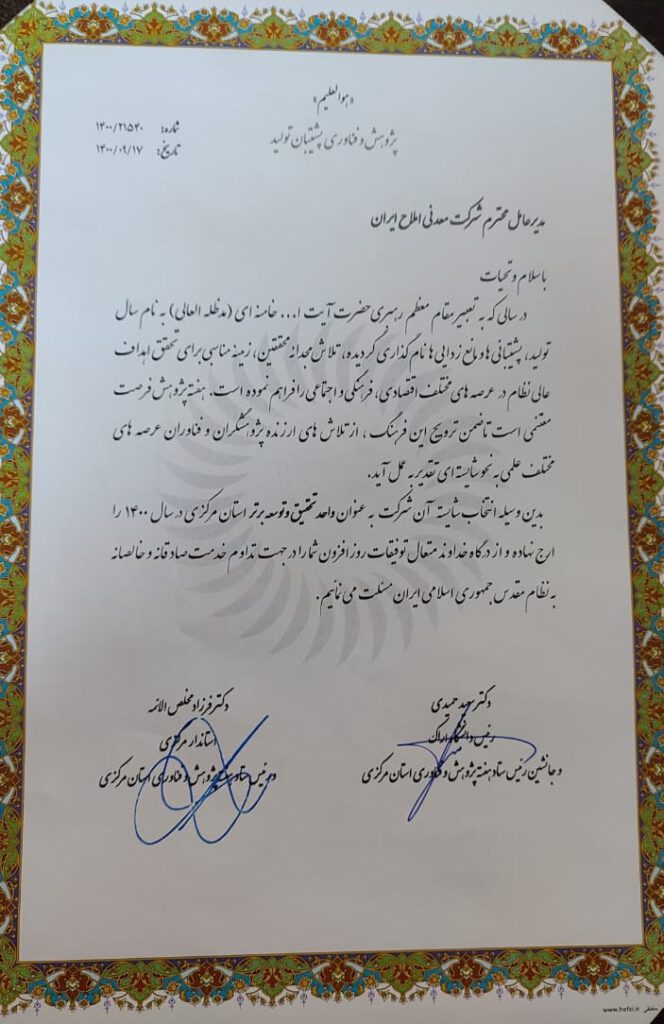 «هوالعلیم»
پژوهش و فناوری پشتیبان تولید
شماره: ۱۴۰۰/۲۱۵۴۰
تاریخ: ۱۴۰۰/۰۹/۱۷
مدیرعامل محترم شرکت معدنی املاح ایران
با سلام و تحیات
در سالی که به تعبیر مقام معظم رهبری حضرت آیت ا... خامنه ای (مدظله العالی) به نام سال
تولید، پشتیبانی ها و مانع زدایی ها نام گذاری گردیده، تلاش مجدانه محققین، زمینه مناسبی برای تحقق اهداف
عالی نظام در عرصه های مختلف اقتصادی، فرهنگی و اجتماعی را فراهم نموده است. هفته پژوهش فرصت
مغتنمی است تا ضمن ترویج این فرهنگ، از تلاش های ارزنده پژوهشگران و فناوران عرصه های
مختلف علمی به نحو شایسته ای تقدیر به عمل آید.
بدین وسیله انتخاب شایسته آن شرکت به عنوان واحد تحقیق و توسعه برتر استان مرکزی در سال ۱۴۰۰ را
ارج نهاده و از درگاه خداوند متعال توفیقات روز افزون شما را در جهت تداوم خدمت صادقانه و خالصانه
به نظام مقدس جمهوری اسلامی ایران مسئلت می نمائیم.
دکتر سعید حمیدی
رئیس دانشگاه اراک
و جانشین رئیس ستاد هفته پژوهش و فناوری استان مرکزی
دکتر فرزاد مخلص الائمه
استاندار مرکزی
و رئیس ستاد هفته پژوهش و فناوری استان مرکزی
www.hefzi.ir